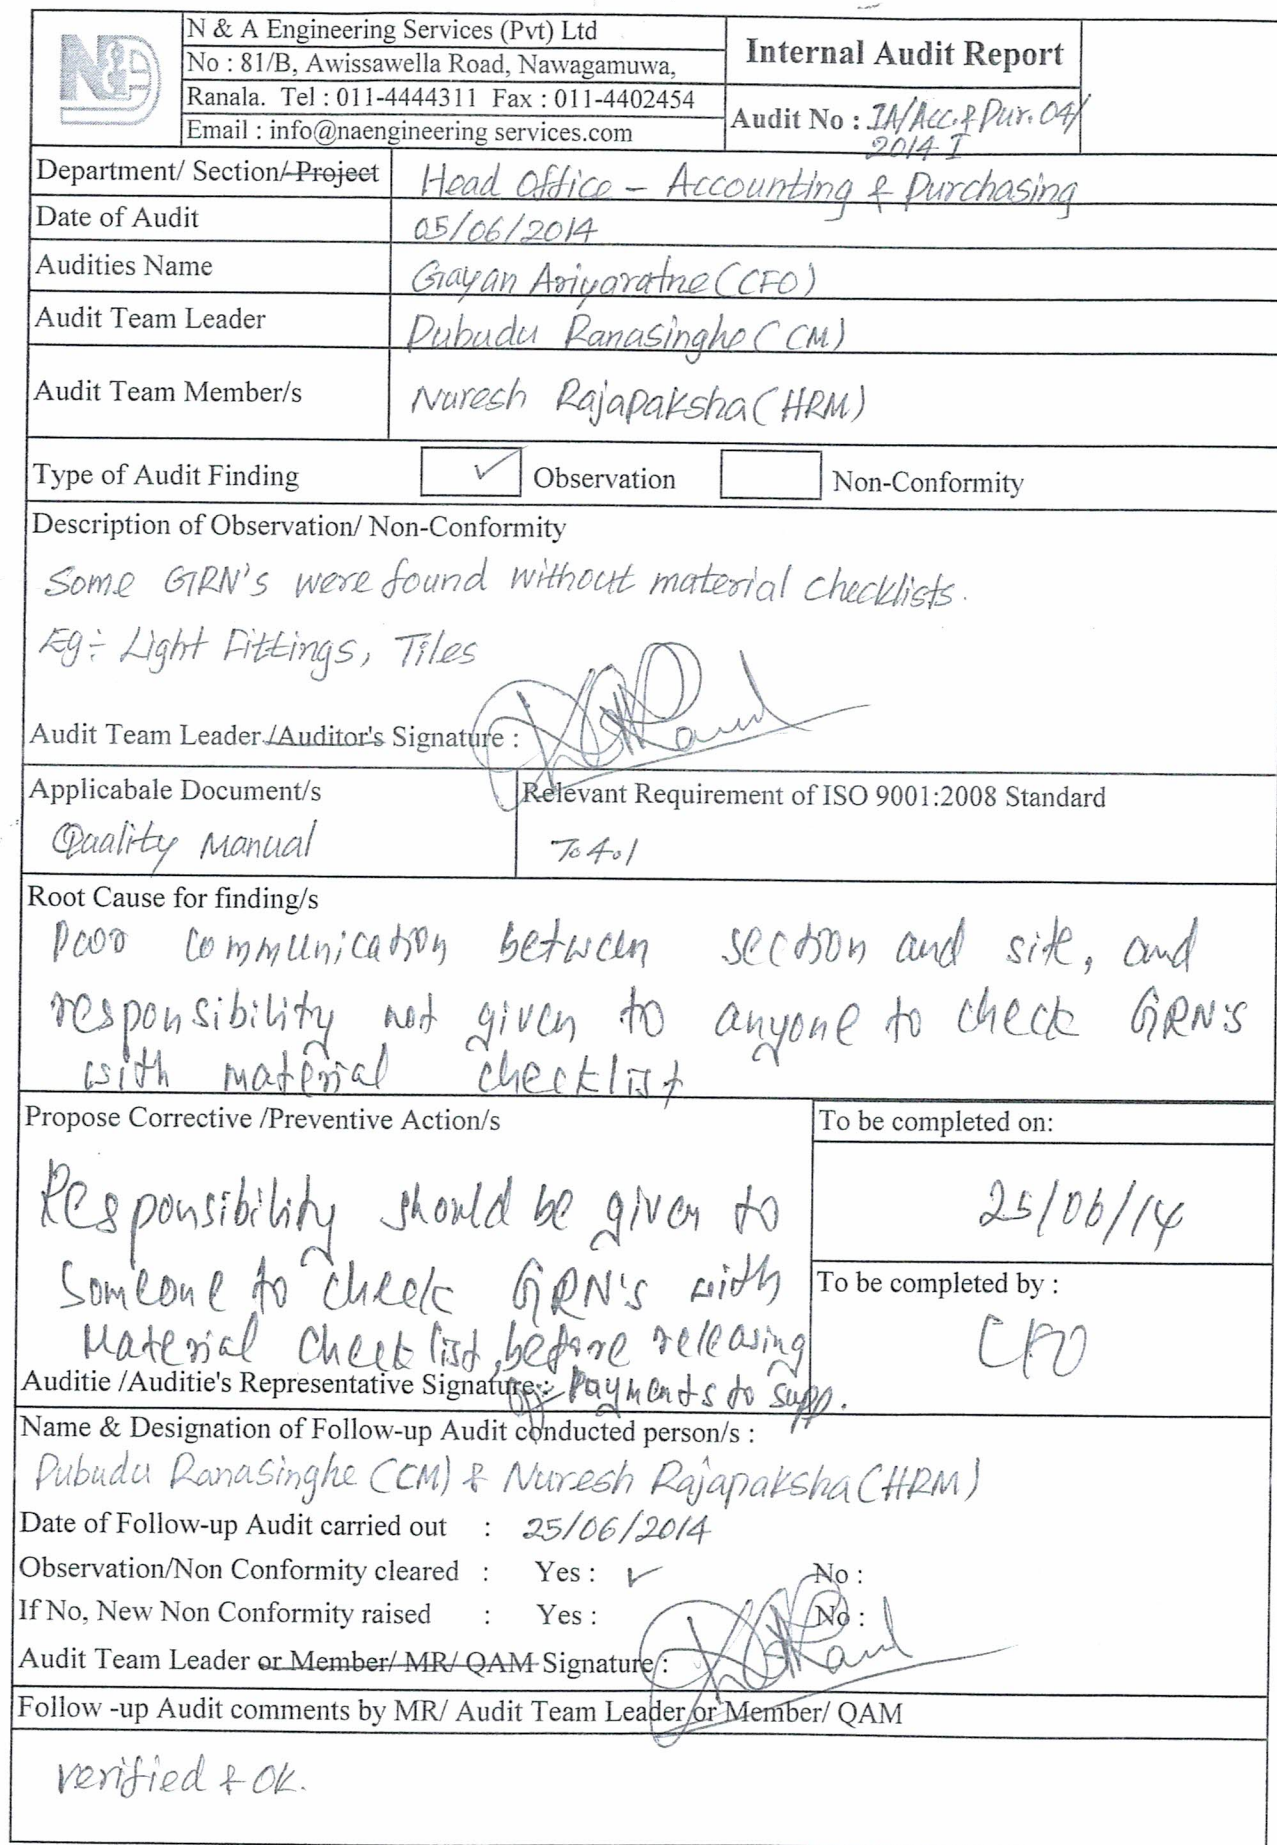 N&E
N & A Engineering Services (Pvt) Ltd
No : 81/B, Awissawella Road, Nawagamuwa,
Ranala. Tel : 011-4444311 Fax : 011-4402454
Email : info@naengineering services.com
Internal Audit Report
Audit No : IA/Acc.& Pur. 04/
2014-I
Department/ Section/ Project Head Office - Accounting & Purchasing
Date of Audit 05/06/2014
Audities Name Gayan Ariyaratne (CFO)
Audit Team Leader Pubudu Ranasinghe (CM)
Audit Team Member/s Nuresh Rajapaksha (HRM)
Type of Audit Finding ✓ Observation Non-Conformity
Description of Observation/ Non-Conformity
Some GRN's were found without material checklists.
Eg:- Light Fittings, Tiles
Audit Team Leader /Auditor's Signature :
Applicabale Document/s
Quality Manual
Relevant Requirement of ISO 9001:2008 Standard
7.4.1
Root Cause for finding/s
Poor communication between section and site, and
responsibility not given to anyone to check GRN's
with material checklist
Propose Corrective /Preventive Action/s
Responsibility should be given to
Someone to check GRN's with
Material Check list, before releasing
Payments to supp.
To be completed on:
25/06/14
To be completed by :
CFO
Auditie /Auditie's Representative Signature :
Name & Designation of Follow-up Audit conducted person/s :
Pubudu Ranasinghe (CM) & Nuresh Rajapaksha (HRM)
Date of Follow-up Audit carried out : 25/06/2014
Observation/Non Conformity cleared : Yes : ✓ No :
If No, New Non Conformity raised : Yes : No :
Audit Team Leader or Member/ MR/ QAM Signature :
Follow -up Audit comments by MR/ Audit Team Leader or Member/ QAM
verified & OK.